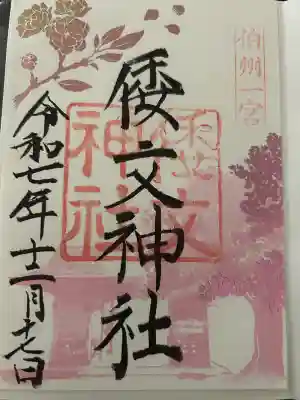 伯州一宮
倭文神社
倭文神社
令和七年十二月十七日